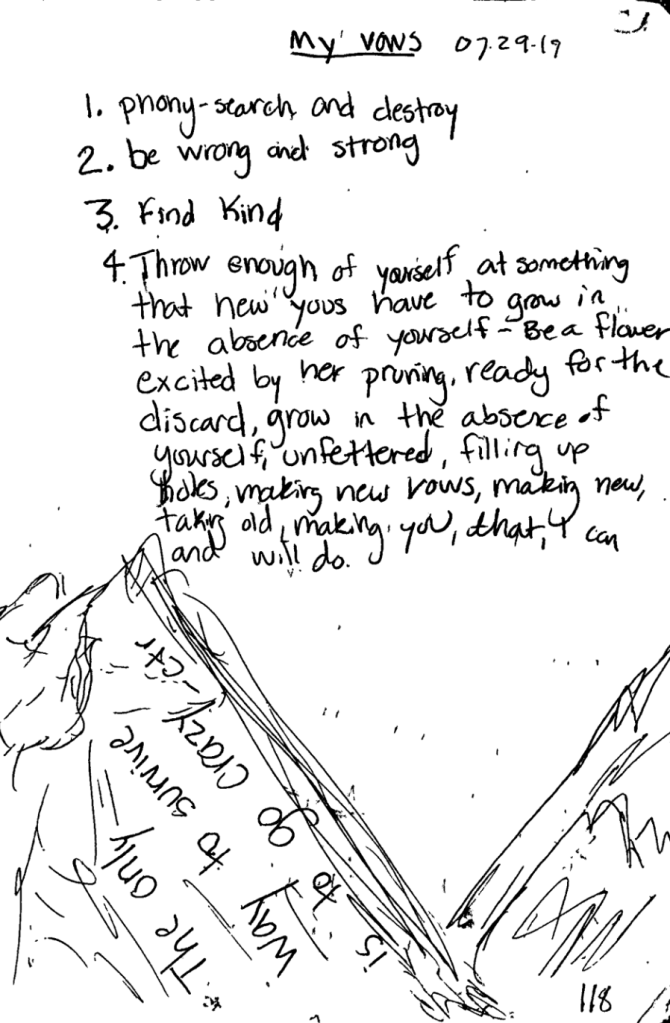 My vows 07.29.19
1. phony-search and destroy
2. be wrong and strong
3. Find Kind
4. Throw enough of yourself at something
that new yous have to grow in
the absence of yourself - Be a flower
excited by her pruning, ready for the
discard, grow in the absence of
yourself, unfettered, filling up
holes, making new vows, making new,
taking old, making you, that, I can
and will do.
The only
way to survive
is to go crazy -ctr
118